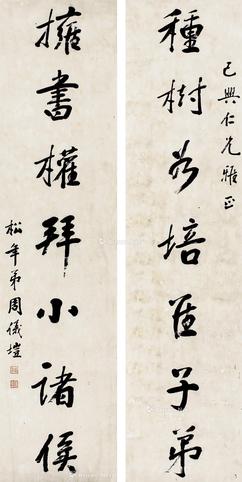 己興仁兄雅正
種樹若培佳子弟
擁書權拜小諸侯
松年弟周儀塏